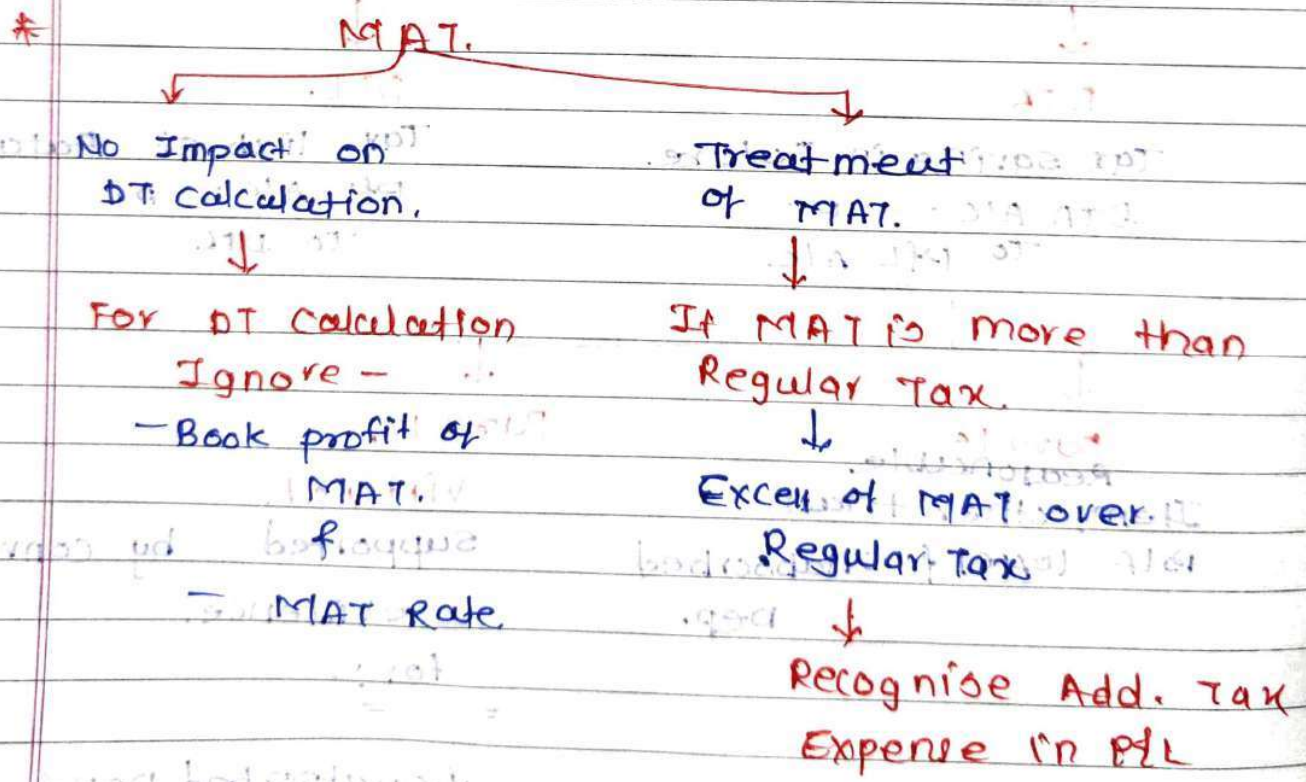 *
MAT.
No Impact on
DT calculation.
For DT calculation
Ignore -
- Book profit of
MAT.
&
- MAT Rate
Treatment
of MAT.
If MAT is more than
Regular Tax.
Excess of MAT over
Regular Tax
Recognise Add. Tax
Expense in P&L